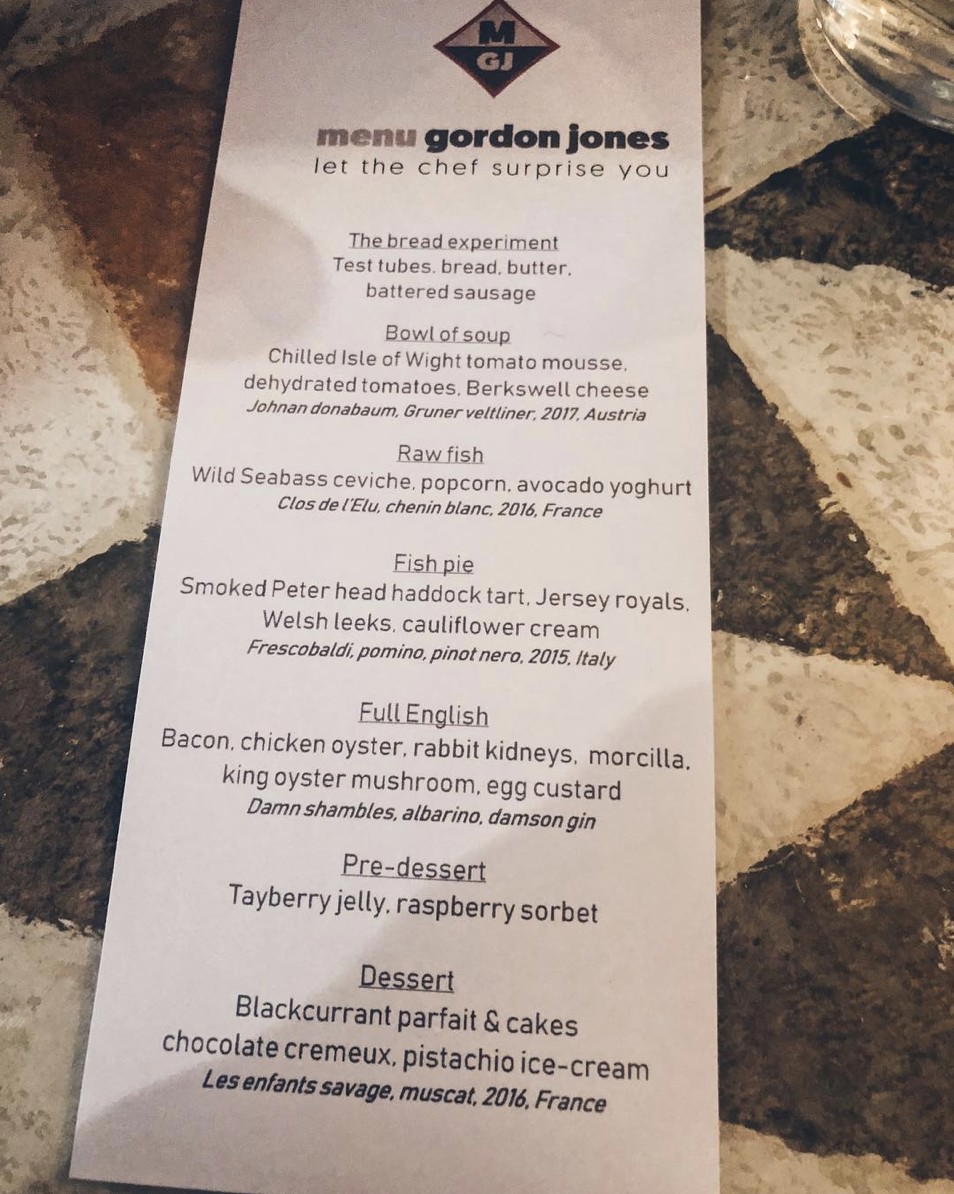 M
GJ
menu gordon jones
let the chef surprise you
The bread experiment
Test tubes, bread, butter,
battered sausage
Bowl of soup
Chilled Isle of Wight tomato mousse,
dehydrated tomatoes, Berkswell cheese
Johnan donabaum, Gruner veltliner, 2017, Austria
Raw fish
Wild Seabass ceviche, popcorn, avocado yoghurt
Clos de l'Elu, chenin blanc, 2016, France
Fish pie
Smoked Peter head haddock tart, Jersey royals,
Welsh leeks, cauliflower cream
Frescobaldi, pomino, pinot nero, 2015, Italy
Full English
Bacon, chicken oyster, rabbit kidneys, morcilla,
king oyster mushroom, egg custard
Damn shambles, albarino, damson gin
Pre-dessert
Tayberry jelly, raspberry sorbet
Dessert
Blackcurrant parfait & cakes
chocolate cremeux, pistachio ice-cream
Les enfants savage, muscat, 2016, France